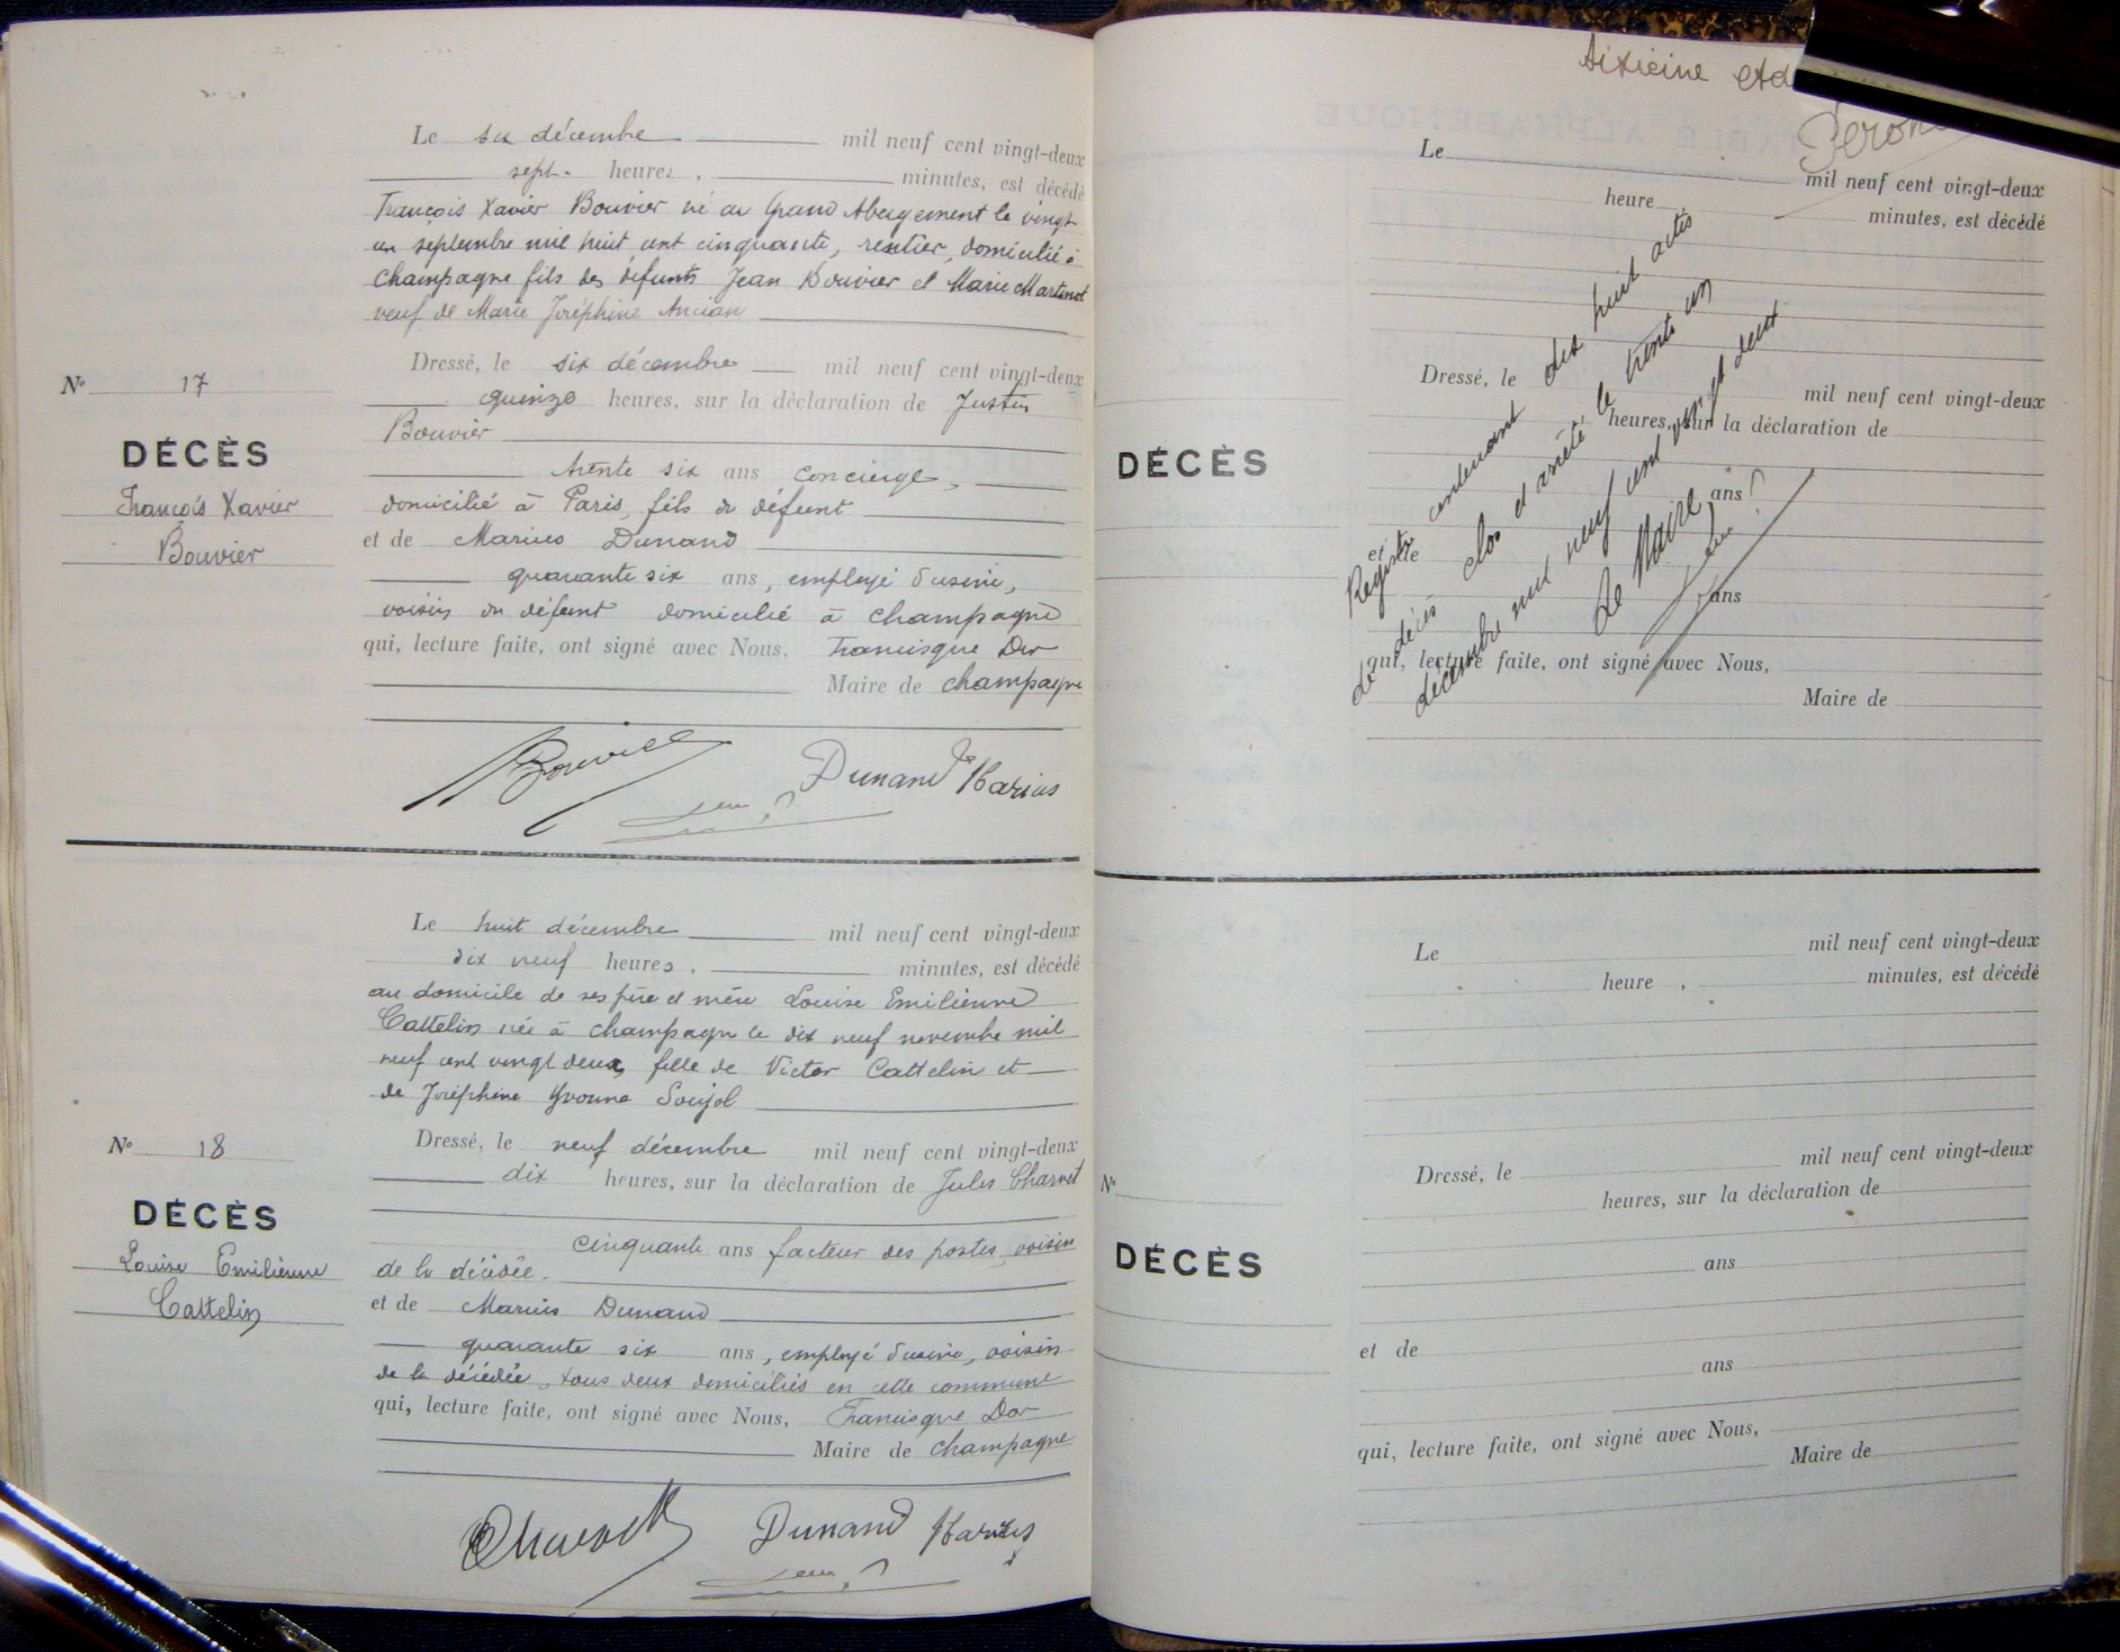 Le six décembre mil neuf cent vingt-deux
sept. heures, minutes, est décédé
François Xavier Bouvier né au Grand Abergement le vingt
un septembre mil huit cent cinquante, rentier, domicilié à
Champagne fils des défunts Jean Bouvier et Marie Martinet
veuf de Marie Joséphine Ancian
N° 17
DÉCÈS
François Xavier
Bouvier
Dressé, le six décembre mil neuf cent vingt-deux
quinze heures, sur la déclaration de Justin
Bouvier
trente six ans concierge,
domicilié à Paris, fils du défunt
et de Marius Dunand
quarante six ans, employé d'usine,
voisin du défunt domicilié à Champagne
qui, lecture faite, ont signé avec Nous, Francisque Dor
Maire de Champagne
Bouvier Dunand Marius
Le huit décembre mil neuf cent vingt-deux
dix neuf heures, minutes, est décédé
au domicile de ses père et mère Louise Emilienne
Cattelin née à Champagne le dix neuf novembre mil
neuf cent vingt deux, fille de Victor Cattelin et
de Joséphine Yvonne Soujol
N° 18
DÉCÈS
Louise Emilienne
Cattelin
Dressé, le neuf décembre mil neuf cent vingt-deux
dix heures, sur la déclaration de Jules Charvet
cinquante ans facteur des postes, voisin
de la décédée.
et de Marius Dunand
quarante six ans, employé d'usine, voisin
de la décédée, tous deux domiciliés en cette commune
qui, lecture faite, ont signé avec Nous, Francisque Dor
Maire de Champagne
Charvet Dunand Marius
Le mil neuf cent vingt-deux
heure, minutes, est décédé
Dressé, le mil neuf cent vingt-deux
heures, sur la déclaration de
DÉCÈS
ans
et de
ans
qui, lecture faite, ont signé avec Nous,
Maire de
Registre contenant dix huit actes
de décès clos et arrêté le trente un
décembre mil neuf cent vingt deux
Le Maire
Le mil neuf cent vingt-deux
heure, minutes, est décédé
Dressé, le mil neuf cent vingt-deux
N°
heures, sur la déclaration de
DÉCÈS
ans
et de
ans
qui, lecture faite, ont signé avec Nous,
Maire de